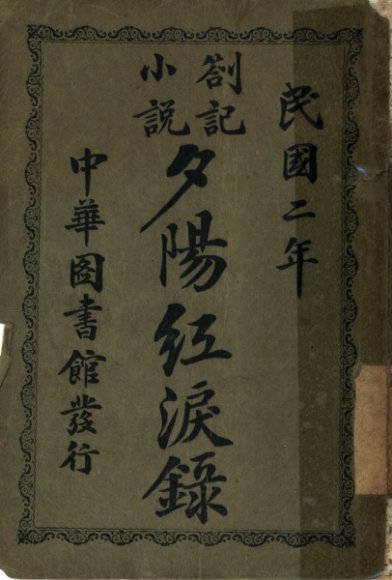 民國二年
劄記
小説
夕陽紅淚錄
中華图書館發行